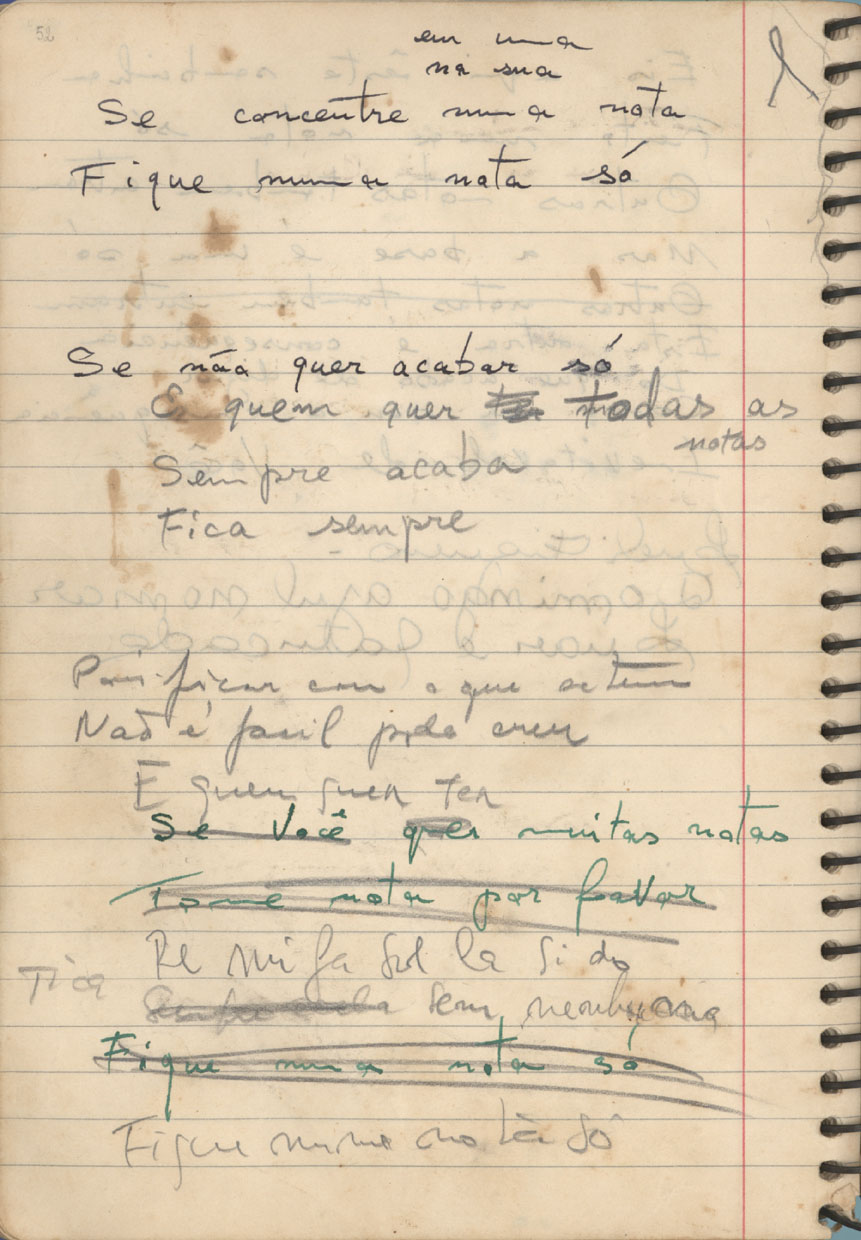 52
em uma
na sua
Se concentre numa nota
Fique numa nota só
Se não quer acabar só
E quem quer todas as
notas
Sempre acaba
Fica sempre
Pois ficar com o que se tem
Não é facil pode crer
E quem quer ter
Se Você quer muitas notas
Tome nota por favor
Re mi fa sol la si do
Fica
sem nenhuma
Fique numa nota só
Fique numa nota só